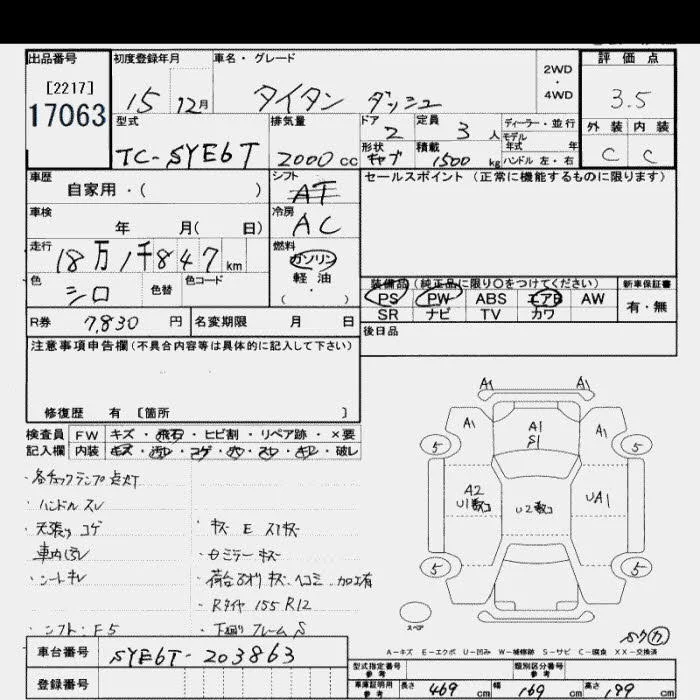 出品番号 初度登録年月 車名・グレード 2WD・4WD 評価点
[2217]
17063
15 12月 タイタン ダッシュ 3.5
型式 排気量 ドア 定員 ディーラー・並行 外装 内装
2 3人 モデル年式 年
TC-SYE6T 2000cc 形状 積載 ハンドル 左・右 C C
1500kg
車歴 シフト セールスポイント (正常に機能するものに限ります)
自家用・( ) AT
車検 冷房
年 月( 日) AC
走行 燃料
18万1千847km ガソリン
色 色替 色コード 軽油
シロ (・)
装備品 (純正品に限り○をつけてください) 新車保証書
PS PW ABS エアB AW 有・無
SR ナビ TV カワ
R券 7,830円 名変期限 月 日
後日品
注意事項申告欄(不具合内容等は具体的に記入して下さい)
修復歴 有 [箇所 ]
検査員 FW キズ・飛石・ヒビ割・リペア跡・×要
記入欄 内装 キズ・汚レ・コゲ・穴・スレ・キレ・破レ
・各チェックランプ点灯
・ハンドル スレ
・天張り コゲ
・シートキレ
・シフト:F5
・キズ E スリキズ
・荷台 キズ・ヘコミ・加工有
・Rタイヤ 155 R12
・下廻り フレーム S
A1 A1
A1 A1 S1 A1
5 5
A2 U1数コ U2数コ UA1
5 5
スペア
A-キズ E-エクボ U-凹み W-補修跡 S-サビ C-腐食 XX-交換済
車台番号 SYE6T-203863
登録番号
型式指定番号 参考 類別区分番号 参考
車庫証明用 参考 長さ 469cm 幅 169cm 高さ 199cm